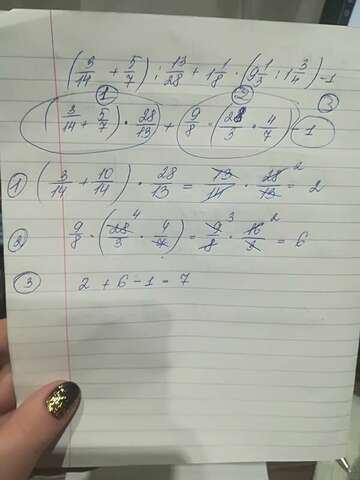 (3/14 + 5/7) : 13/28 + 1 1/8 · (9 1/3 : 1 3/4) - 1
① ② ③
(3/14 + 5/7) · 28/13 + 9/8 · (28/3 · 4/7) - 1
① (3/14 + 10/14) · 28/13 = 13/14 · 28/13 = 2
② 9/8 · (28/3 · 4/7) 4 = 9/8 · 16/3 3 2 = 6
③ 2 + 6 - 1 = 7